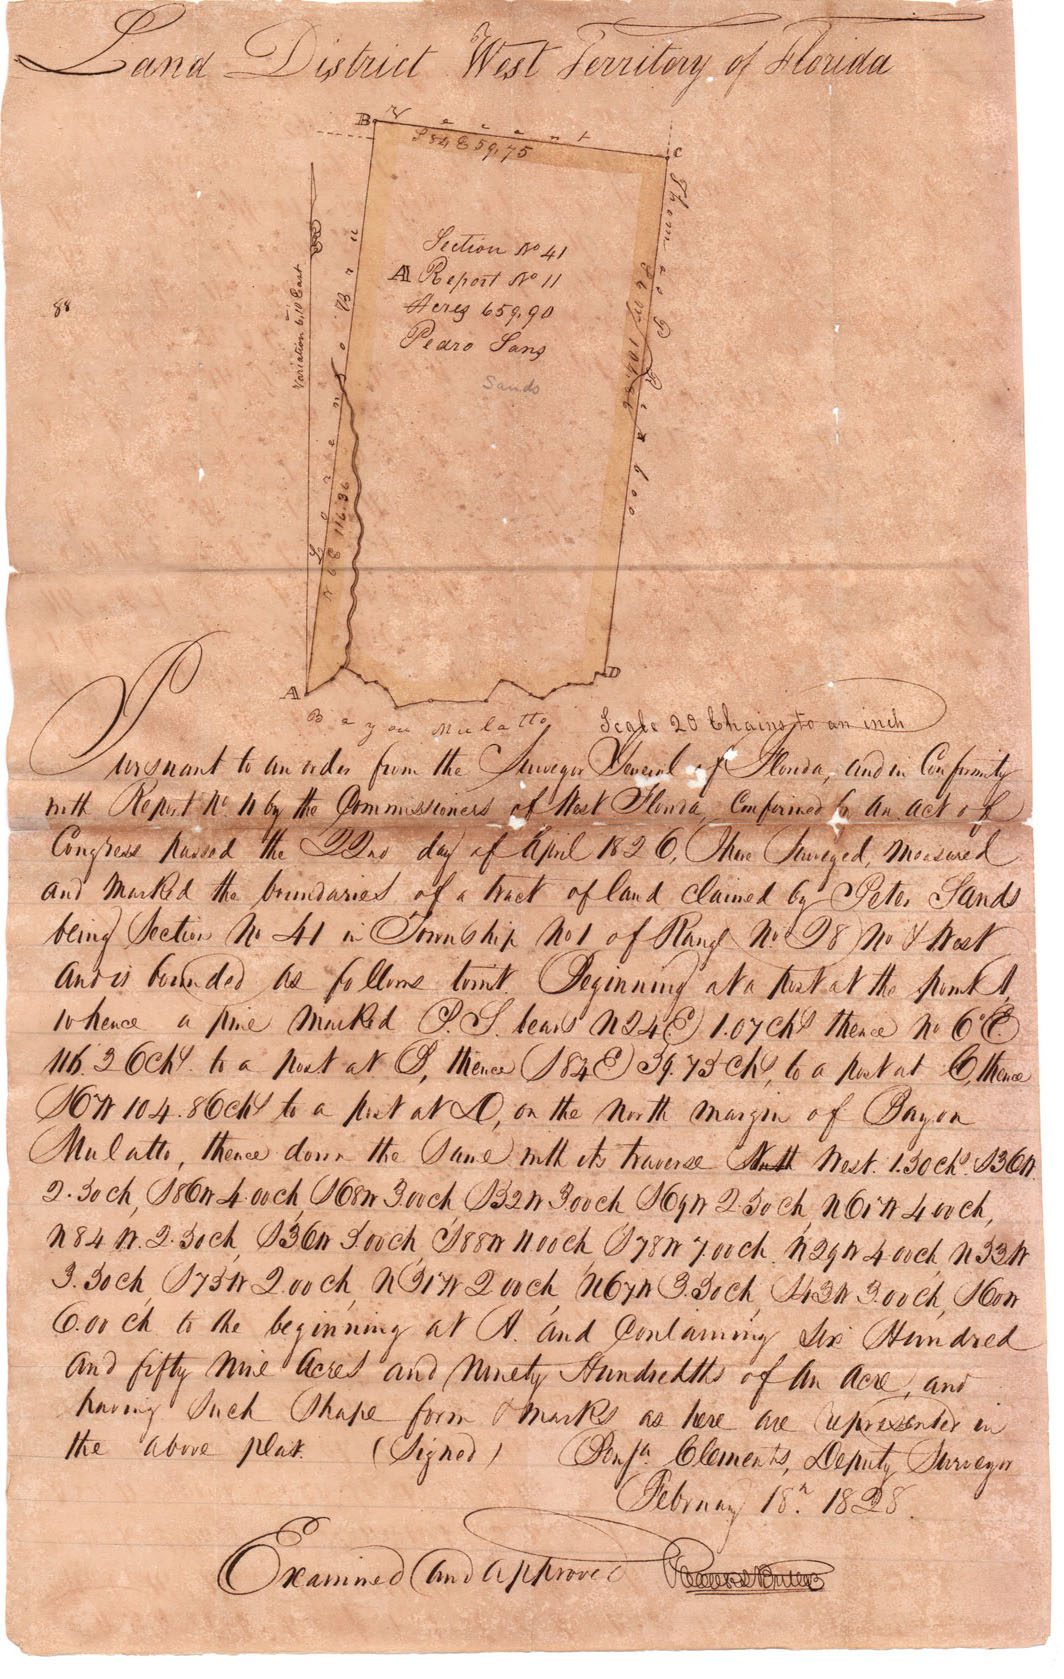 Land District West Territory of Florida
B
Vacant
C
S 84 E 59.75
Thomas G
Variation 6,10 East
Section No 41
A Report No 11
Acres 659.90
Pedro Sans
Sands
88
Lorenso Bru
N 6 E 116.36
A
D
Bayou Mulatto
Scale 20 Chains to an inch
Pursuant to an order from the Surveyor General of Florida, and in Conformity
with Report No. 11 by the Commissioners of West Florida, Confirmed by An act of
Congress passed the 22nd day of April 1826, I have Surveyed, Measured
and Marked the boundaries of a tract of land claimed by Peter Sands
being Section No 41 in Township No 1 of Range No. 28 No & West
And is bounded as follows towit. Beginning at a post at the point A,
whence a pine Marked P. S. bears N 24 E 1.07 Chs thence No 6° E.
116.26 Chs. to a post at B, thence S 84 E 59.75 Chs, to a post at C, thence
S 6 W 104.86 Chs to a post at D, on the North margin of Bayou
Mulatto, thence down the Same with its traverse North West. 1.50 chs. S 36 W.
2.50 ch, S 86 W 4.00 ch, S 68 W 3.00 ch S 52 W 3.00 ch S 69 W 2.50 ch, N 61 W 4.00 ch,
N 84 W. 2.50 ch, S 36 W 5.00 ch, S 88 W 11.00 ch S 78 W 7.00 ch. N 29 W 4.00 ch, N 53 W
3.50 ch, S 75 W 2.00 ch, N 51 W 2.00 ch, N 67 W 3.50 ch, S 43 W 3.00 ch, S 60 W
6.00 ch to the beginning at A. and Containing Six Hundred
And fifty Nine Acres and Ninety Hundredths of An Acre, and
having Such Shape form & marks as here are represented in
the above plat. (Signed) Benja. Clements, Deputy Surveyor
February 18th. 1828.
Examined and approved